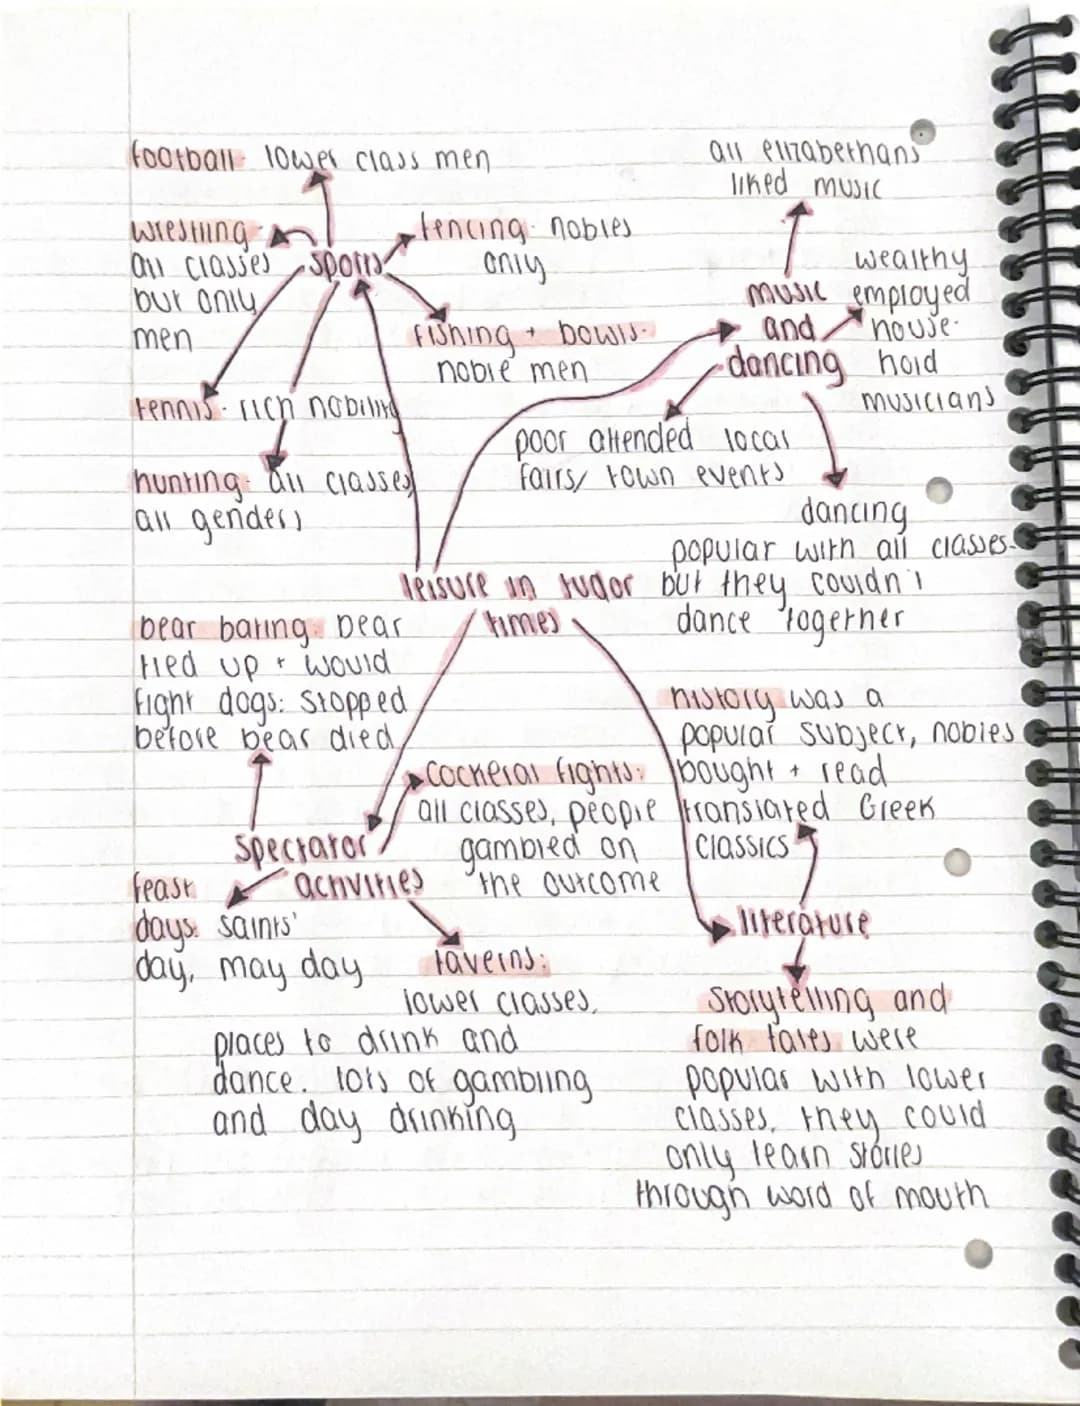 football- lower class men
wrestling-
all classes
but only
men
sports
fencing- nobles
only
fishing + bowls-
noble men
tennis- rich nobility
hunting- all classes,
all genders
all elizabethans
liked music
music
and
dancing
wealthy
employed
house-
hold
musicians
poor attended local
fairs/ town events
dancing
popular with all classes-
but they couldn't
dance together
leisure in tudor
times
bear bating: bear
tied up + would
fight dogs: stopped
before bear died
cockeral fights:
all classes, people
gambled on
the outcome
spectator
activities
feast
days: saints'
day, may day
taverns:
lower classes,
places to drink and
dance. lots of gambling
and day drinking
history was a
popular subject, nobles
bought + read
translated Greek
classics
literature
storytelling and
folk tales were
popular with lower
classes, they could
only learn stories
through word of mouth